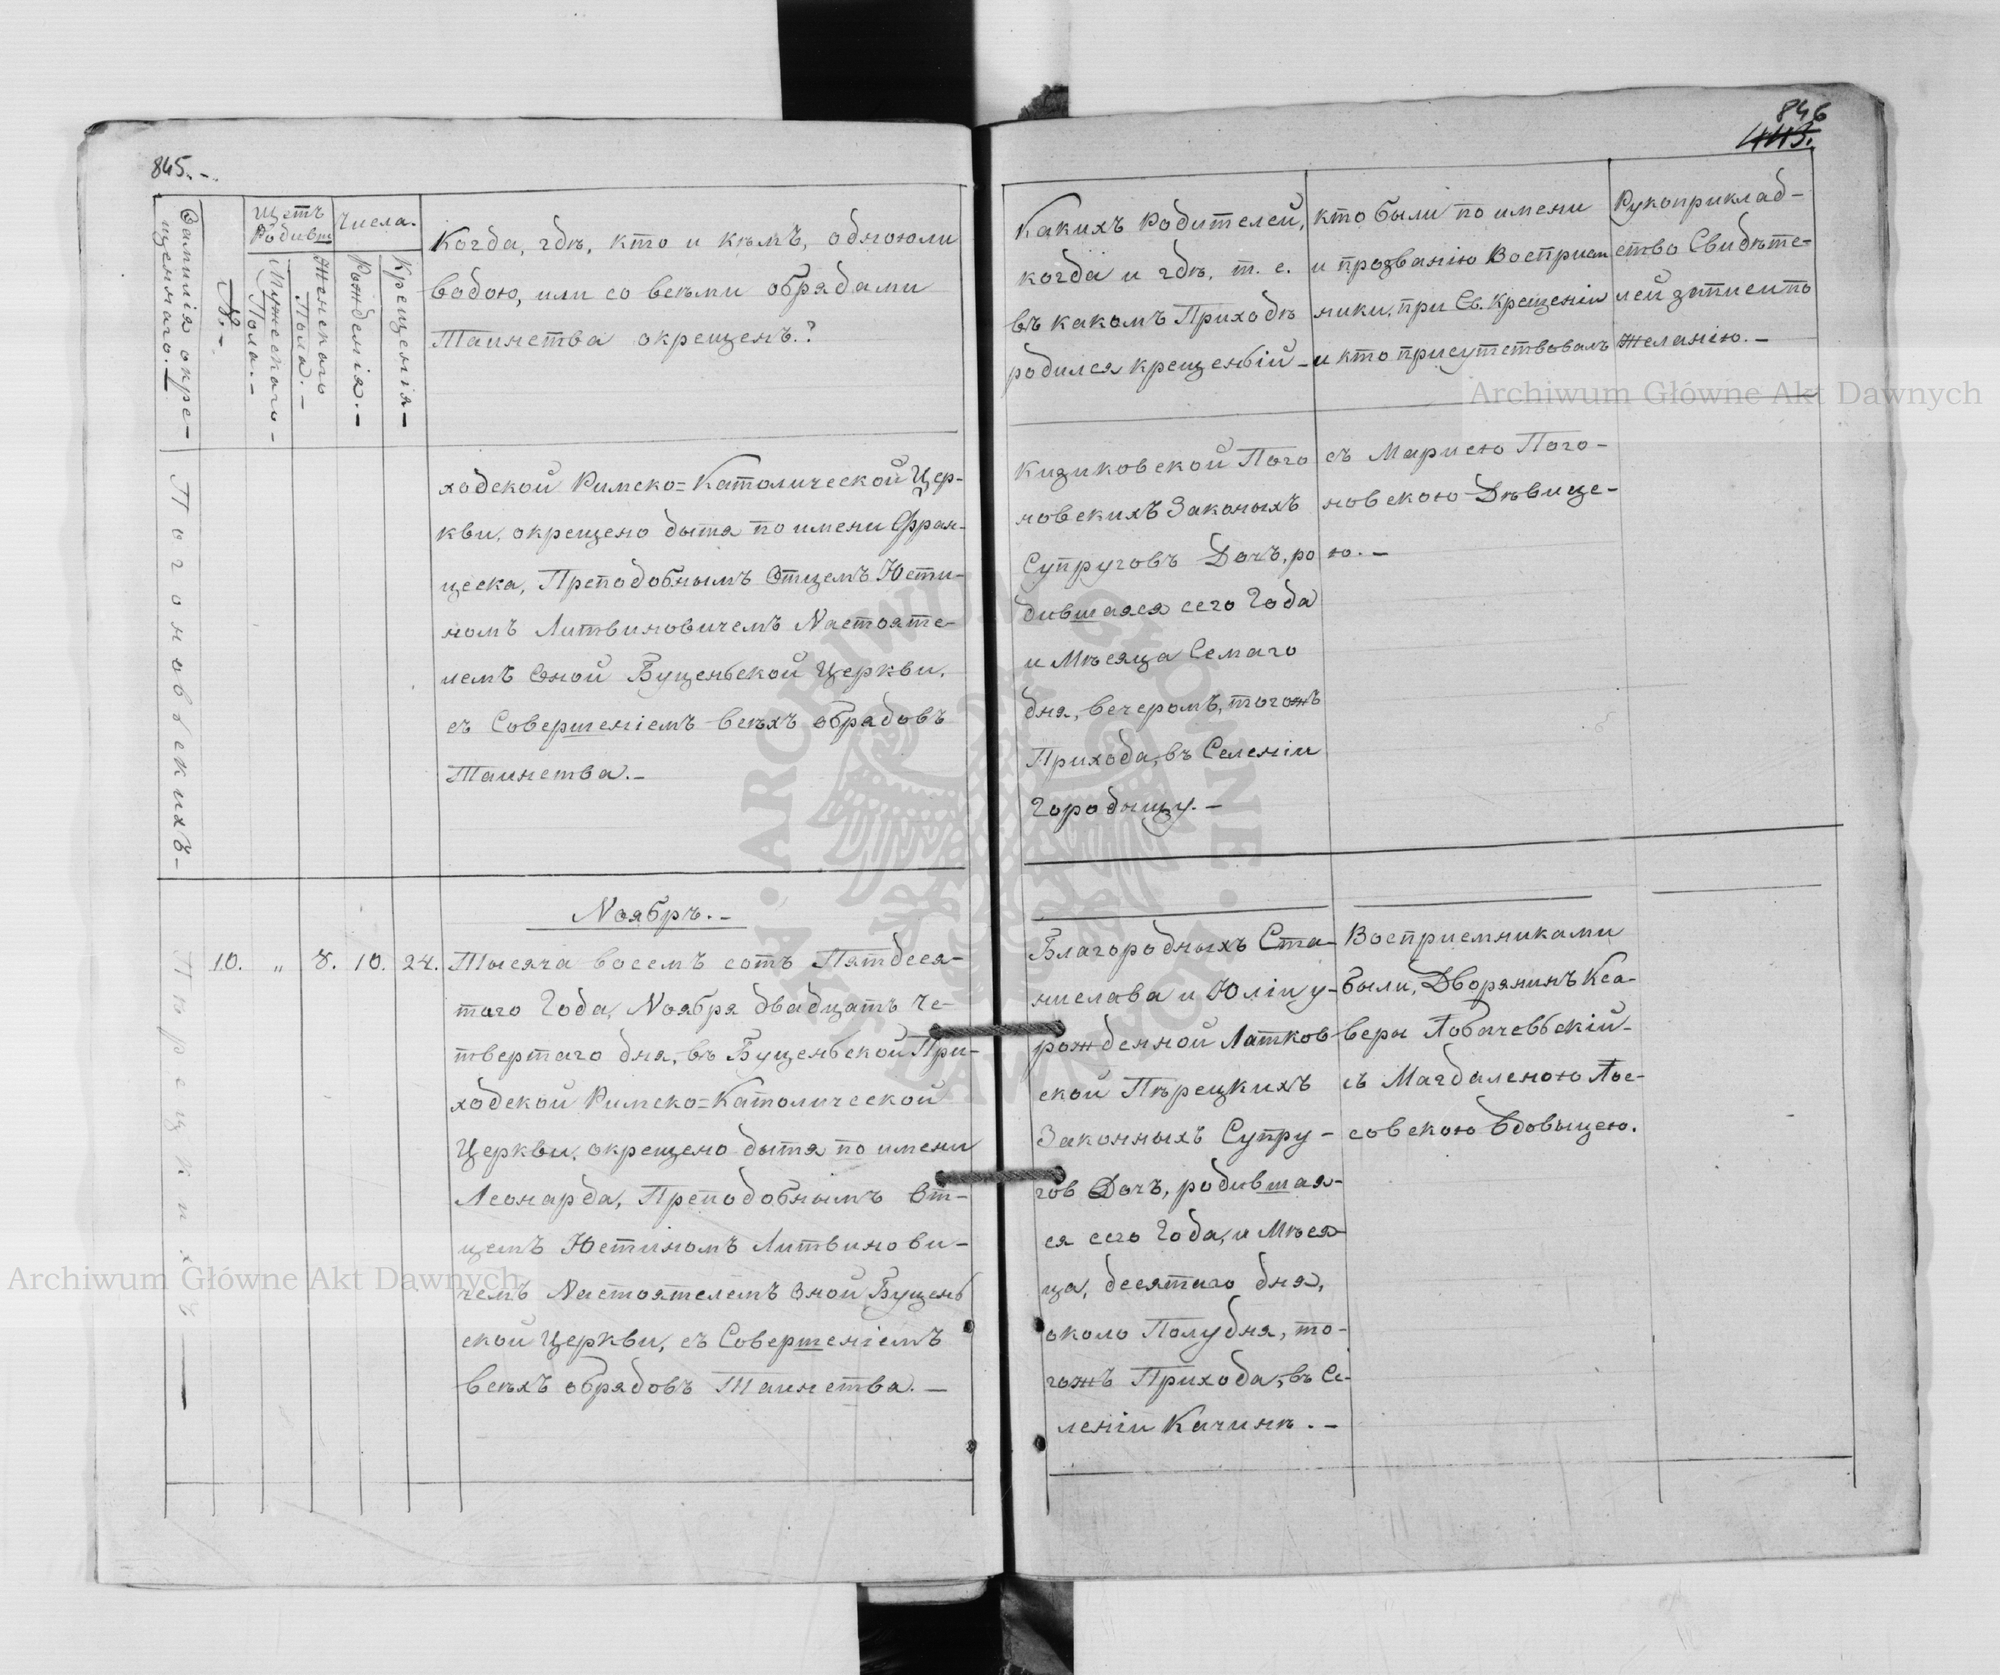 845.-
Фамилія окре-
щеннаго.-
№.-
Щетъ
Родивш
Мужескаго
Пола.-
Женскаго
Пола.-
Числа.
Рожденія.-
Крещенія-
Когда, гдѣ, кто и кѣмъ, одноюли
водою, или со всѣми обрядами
Таинства окрещенъ.?
Погоновскихъ-
ходской Римско=Католической Цер-
кви, окрещено дытя по имени Фран-
цеска, Преподобнымъ Отцемъ Юсти-
номъ Литвиновичемъ Настояте-
лемъ Оной Бущеньской Церкви,
съ Совершеніемъ всѣхъ обрядовъ
Таинства.-
Ноябръ.-
10. „ 8. 10. 24.
Тысяча восемъ сотъ Пятдеся-
таго Года, Ноября двадцать Че-
твертаго дня, въ Бущеньской При-
ходской Римско=Католической
Церкви, окрещено дытя по имени
Леонарда, Преподобнымъ От-
цемъ Юстиномъ Литвинови-
чемъ Настоятелемъ Оной Бущень
ской Церкви, съ Совершеніемъ
всѣхъ обрядовъ Таинства.-
846
443.
Какихъ Родителей,
когда и гдѣ, т. е.
въ какомъ Приходѣ
родился крещеный-
кто были по имени
и прозванію Восприем
ники, при Св. Крещеніи
и кто присутствовалъ
Рукоприклад-
ство Свидѣте-
лей записи по
Желанію.-
Кизиковской Пого
новскихъ Законыхъ
Супруговъ Дочъ, ро
дившаяся сего Года
и Мѣсяца Семаго
дня, вечеромъ, тогожъ
Прихода, въ Селеніи
Городыщу.-
съ Марисю Пого-
новскою Дѣвице-
ю.-
Благородныхъ Ста-
нислава и Юліи у-
рожденной Латков-
ской Пѣрецкихъ
Законныхъ Супру-
гов Дочъ, родившая-
ся сего Года, и Мѣся-
ца, десятаго дня,
около Полудня, то-
гожъ Прихода, въ Се-
леніи Качинѣ.-
Восприемниками
были, Дворянинъ Кса-
веры Лобачевскій-
съ Магдаленою Лос-
совскою Вдовыцею.
Archiwum Główne Akt Dawnych
Archiwum Główne Akt Dawnych